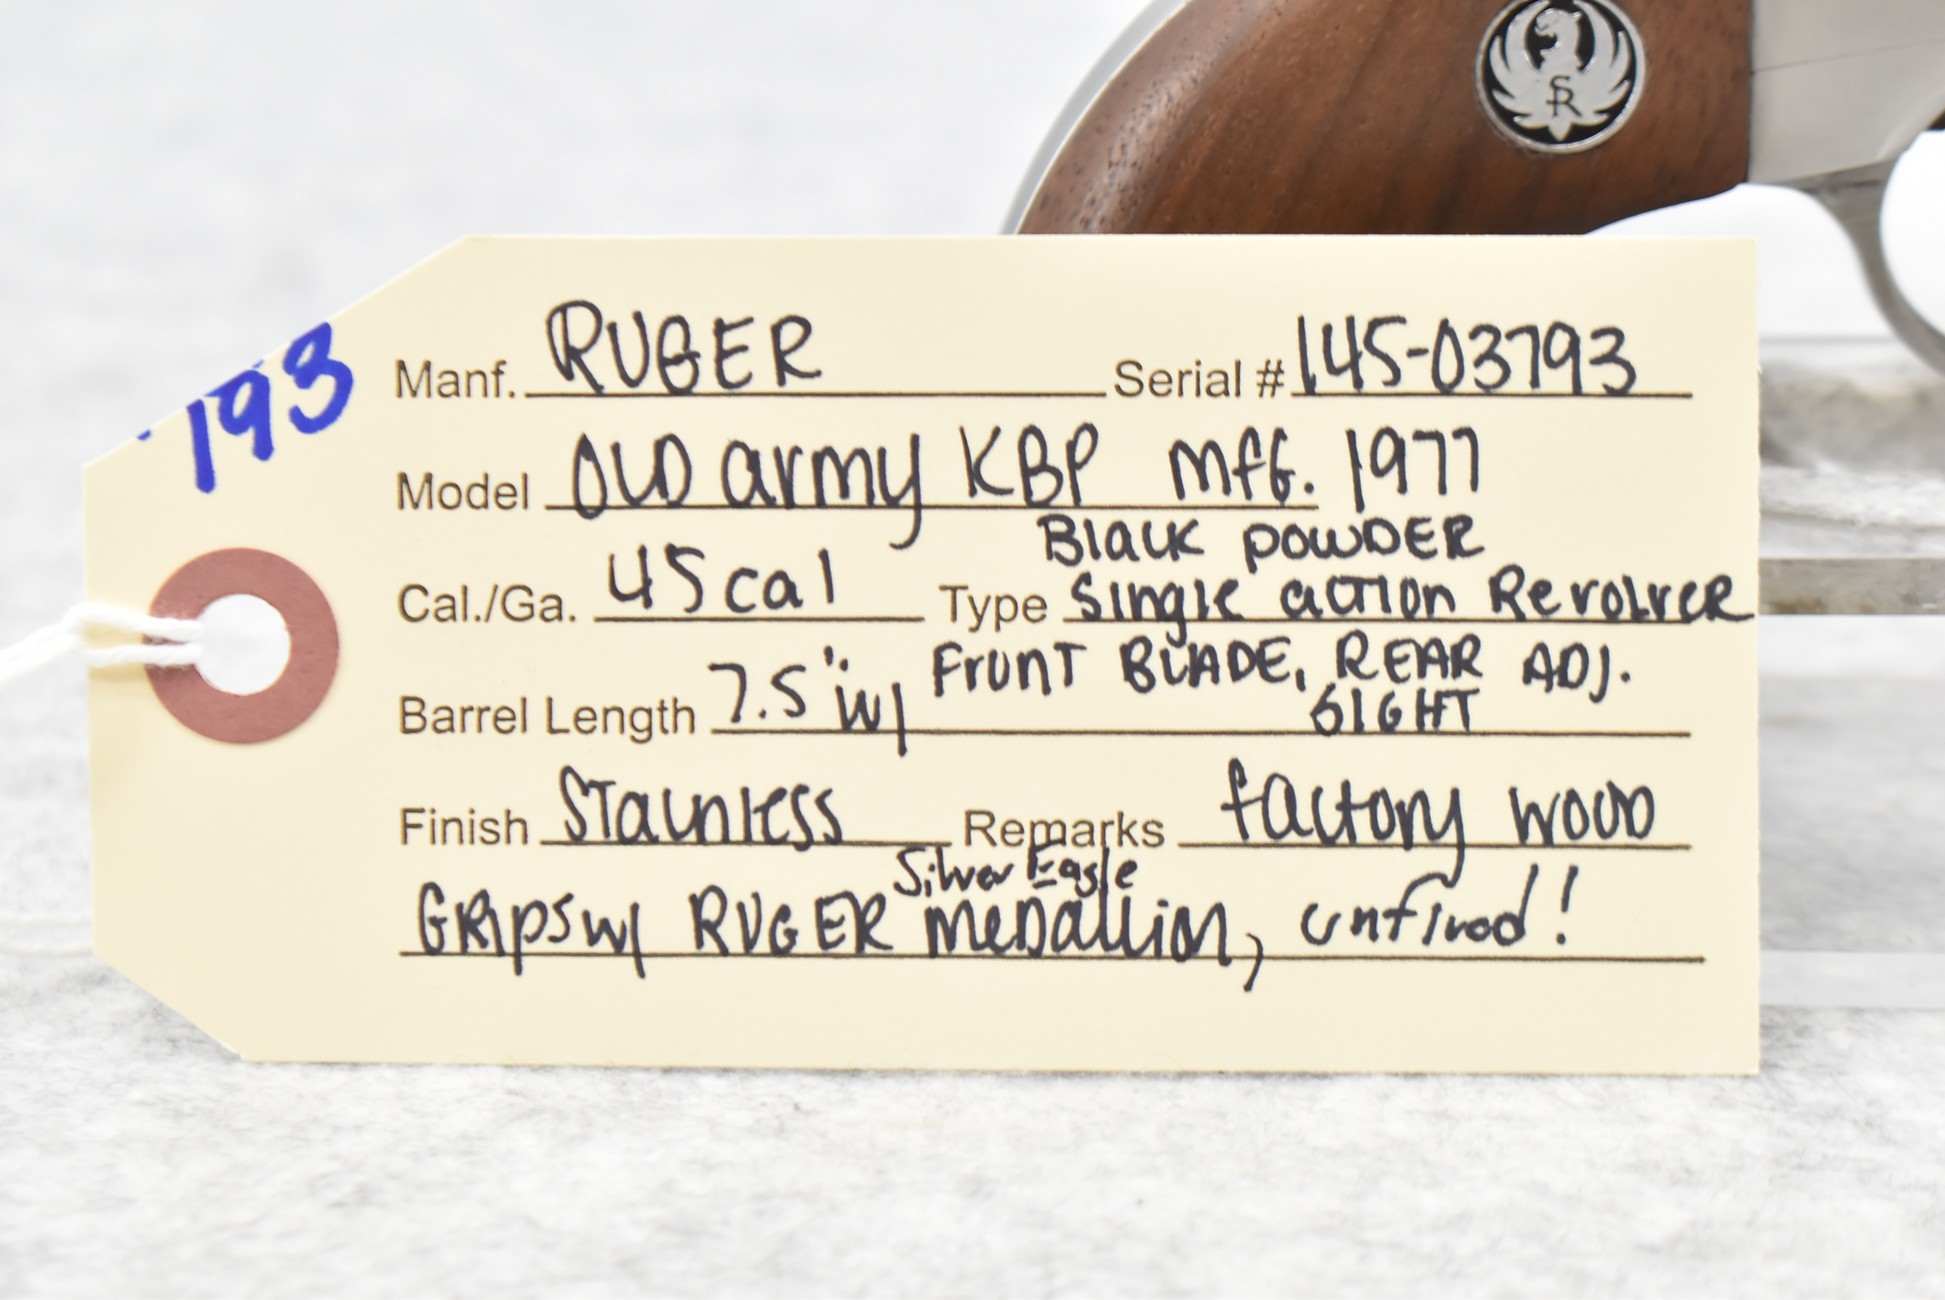 SR
193
Manf. RUGER Serial # 145-03793
Model OLD army KBP mfG. 1977
Black POWDER
Cal./Ga. 45 cal Type Single action Revolver
FRUNT BLADE, REAR ADJ.
Barrel Length 7.5" w/ SIGHT
Finish Stainless Remarks factory wood
Silver Eagle
GRips w/ RUGER meDallion, unfired!